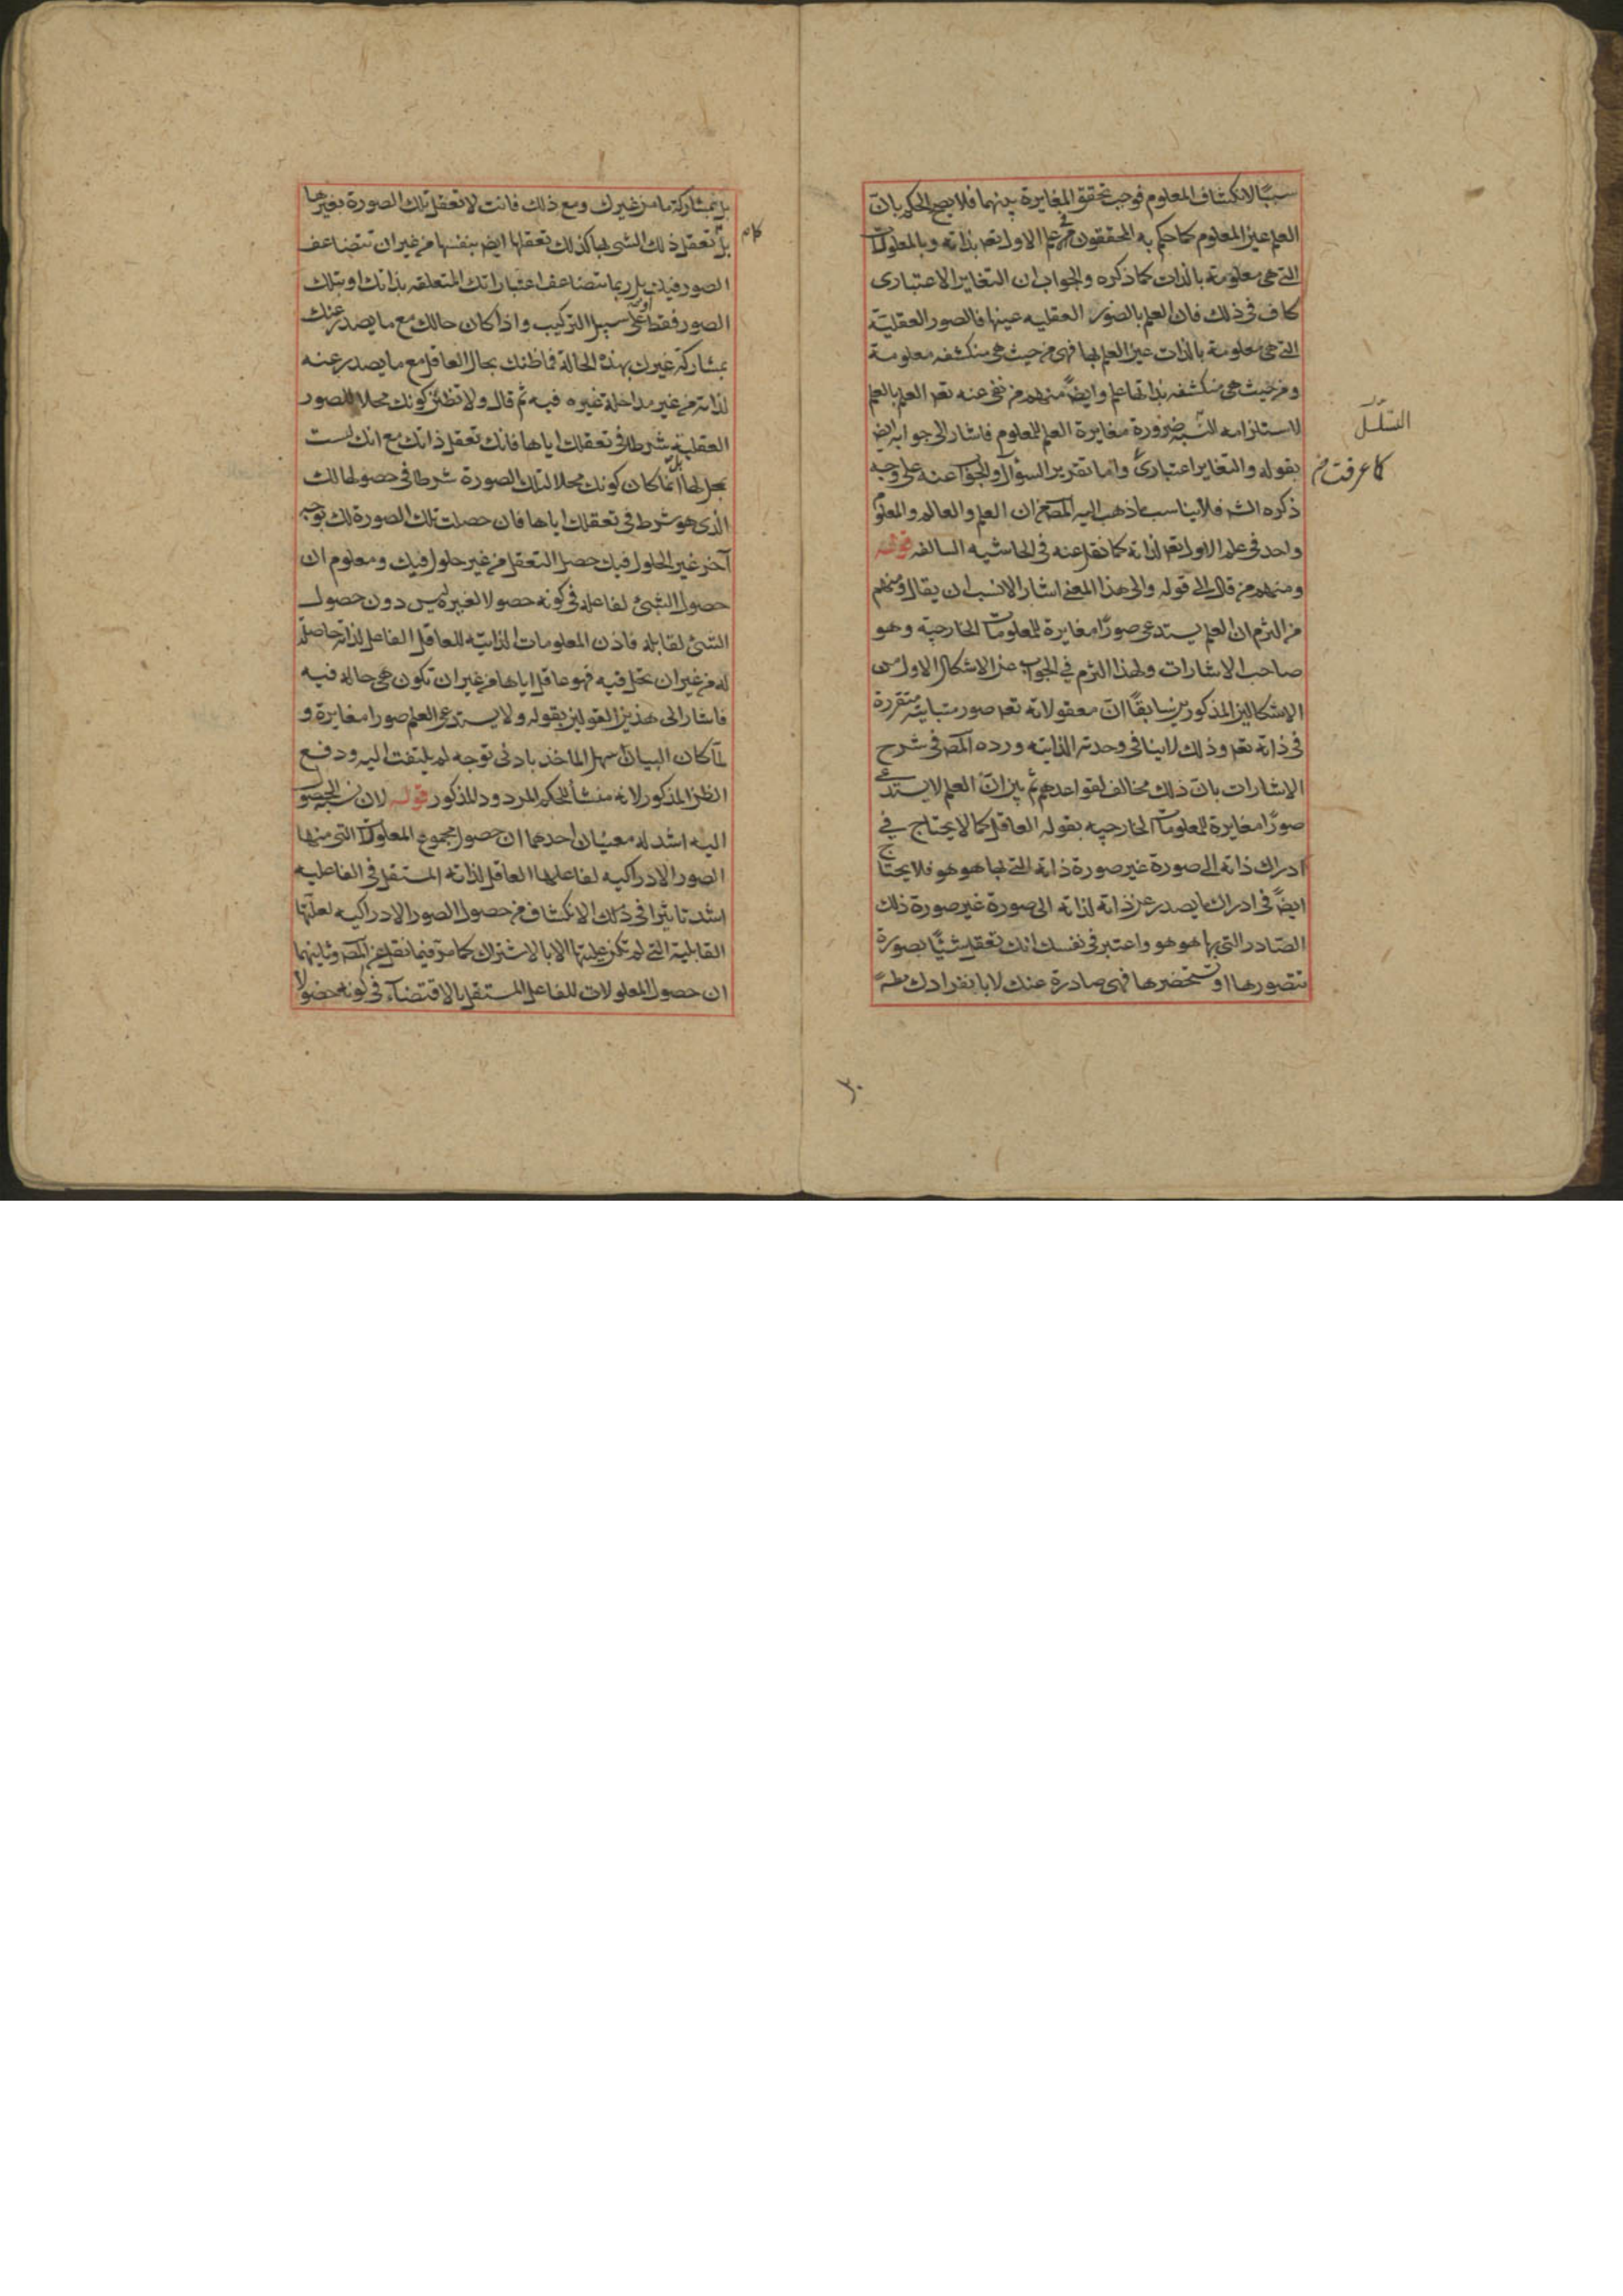 سببًا لانكشاف المعلوم فوجب تحقق المغايرة بينهما فلا يصح الحكم بان
العلم عين المعلوم كما حكم به المحققون في علم الاول تعم بذاته وبالمعلولات
التي هي معلومة بالذات كما ذكره والجواب ان التغاير الاعتبارى
كاف في ذلك فان العلم بالصور العقليه عينها فالصور العقلية
التي هي معلومة بالذات عين العلم بها فهى من حيث هى منكشفه معلومة
ومن حيث هى منكشفه بذاتها علم وايضً منهم من نفى عنه تعم العلم بالعلم
التسلسل
لاستلزامه ضرورة مغايرة العلم للمعلوم فاشار الى جوابه ايض
كما عرفت
بقوله والتغاير اعتبارىّ واما تقرير السؤال والجواب عنه على وجه
ذكره الش فلا يناسب ما ذهب اليه المص من ان العلم والعالم والمعلوم
واحد في علم الاول تعم لذاته كما نقل عنه في الحاشيه السالفه قوله
ومنهم من قال الى قوله والى هذا المعنى اشار الانسب ان يقال ومنهم
من التزم ان العلم يستدعى صورًا مغايرة للمعلومات الخارجية وهو
صاحب الاشارات ولهذا التزم في الجواب عن الاشكال الاول من
الاشكالين المذكورين سابقًا ان معقولاته تعم صور متباينه متقررة
في ذاته تعم وذلك لا ينافى وحدته الذاتيه ورده المص في شرح
الاشارات بان ذلك مخالف لقواعدهم ثم بين ان العلم لا يستدعى
صورًا مغايرة للمعلومات الخارجيه بقوله العاقل كما لا يحتاج في
ادراك ذاته الى صورة غير صورة ذاته التي بها هو هو فلا يحتاج
ايضً في ادراك ما يصدر عن ذاته لذاته الى صورة غير صورة ذلك
الصّادر التي بها هو هو واعتبر في نفسك انك تعقل شيئًا بصورة
تتصورها او تستحضرها فهى صادرة عنك لا بانفرادك مطً
بل بمشاركة ما من غيرك ومع ذلك فانت لا تعقل تلك الصورة بغيرها
كما
بل تعقل ذلك الشى بها كذلك تعقلها ايض بنفسها من غير ان تتضاعف
الصور فيك بل ربما تتضاعف اعتباراتك المتعلقه بذاتك او بتلك
الصور فقط او على سبيل التركيب واذا كان حالك مع ما يصدر عنك
بمشاركة غيرك بهذه الحالة فما ظنك بحال العاقل مع ما يصدر عنه
لذاته من غير مداخلة غيره فيه ثم قال ولا تظنن كونك محلا للصور
العقلية شرطا في تعقلك اياها فانك تعقل ذاتك مع انك لست
بمحل لها بل انما كان كونك محلا لتلك الصورة شرطا في حصولها لك
الذى هو شرط في تعقلك اياها فان حصلت تلك الصورة لك بوجه
آخر غير الحلول فيك حصل التعقل من غير حلول فيك ومعلوم ان
حصول الشئ لفاعله في كونه حصولا لغيره ليس دون حصول
الشئ لقابله فاذن المعلومات الذاتيه للعاقل الفاعل لذاته حاصلة
له من غير ان تحل فيه فهو عاقل اياها من غير ان تكون هى حالة فيه
فاشار الى هذين القولين بقوله ولا يستدعى العلم صورا مغايرة و
لما كان البيان سهل الماخذ بادنى توجه لم يلتفت اليه ودفع
الظن المذكور لانه منشأ للحكم المردود المذكور قوله لان نسبة الحصول
اليه اشد له معنيان احدهما ان حصول مجموع المعلولات التي منها
الصور الادراكيه لفاعلها العاقل لذاته المستقل في الفاعليه
اشد تاثيرا في ذلك الانكشاف من حصول الصور الادراكيه لعلتها
القابلية التي لم تكن عليتها الا بالاشتراك كما مرّ فيما نقل عن المص وثانيهما
ان حصول المعلولات للفاعل المستقل بالاقتضاء في كونه حصولا
٣٠